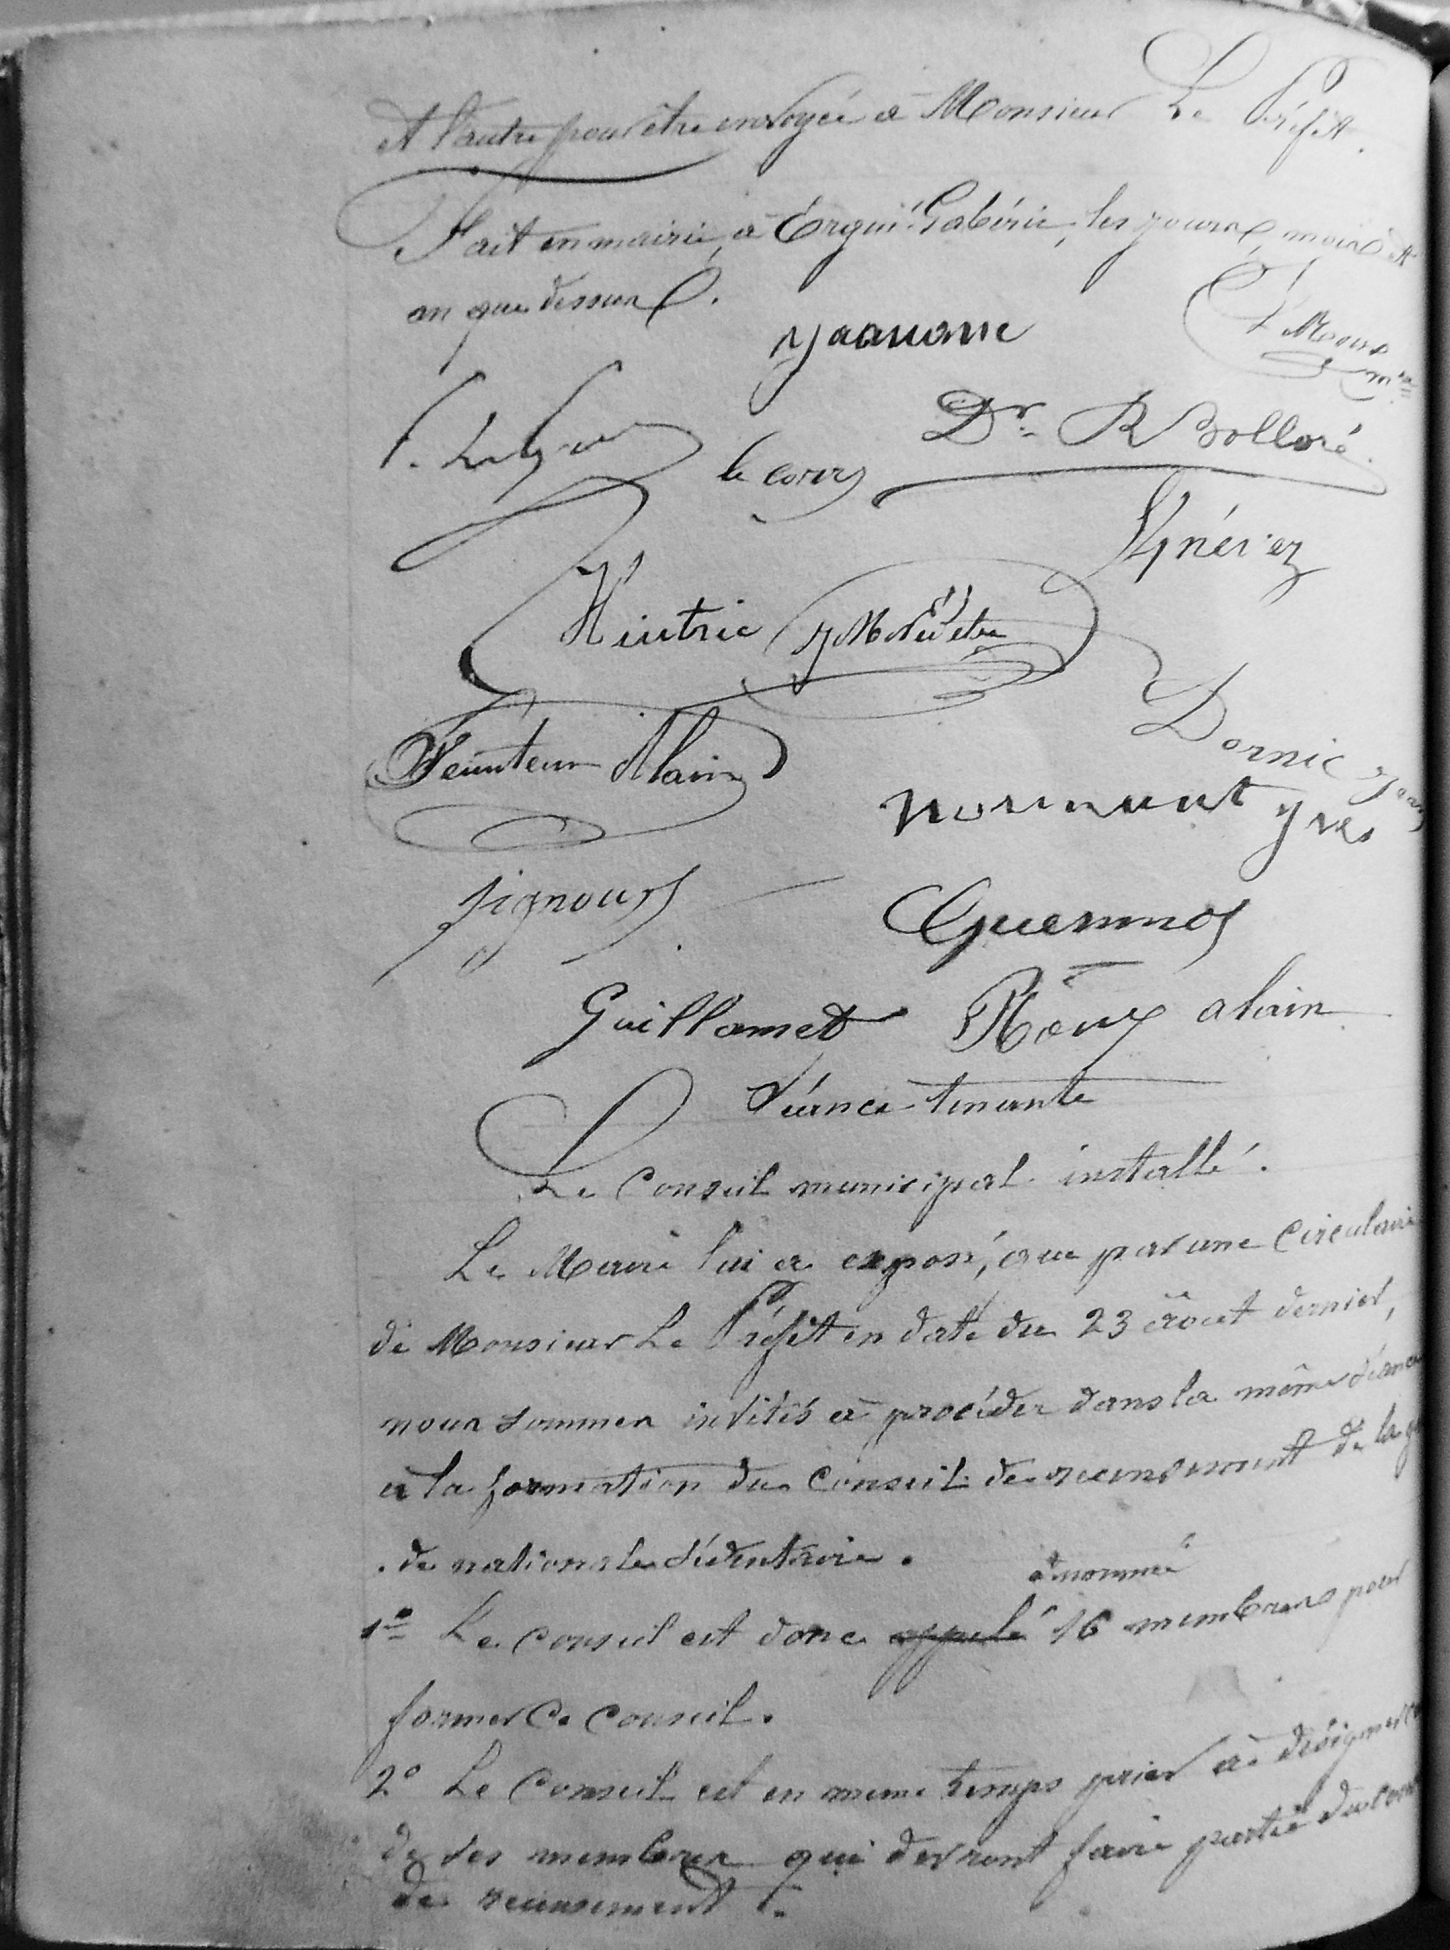 et l'autre pour être envoyée à Monsieur Le Préfet.
Fait en mairie, à Ergué-Gabéric, les jours, mois et
an que dessus.
Dr. R Bolloré
le corre
Kgnévez
Kintric
Dornic
Feunteun Alain
normant yves
signour
Guermeur
Guillamet Rioux alain
Séance tenante
Le Conseil municipal installé.
Le Maire lui a exposé, que par une Circulaire
de Monsieur Le Préfet en date du 23 août dernier,
nous sommes invités à procéder dans la même séance
à la formation du Conseil de recensement de la ga
. de nationale sédentaire.
a nommé
1º Le Conseil est donc appelé 16 membres pour
former Ce Conseil.
2º Le Conseil est en meme temps prier à désigner
de ses membres qui devront faire partie du
de recensement.